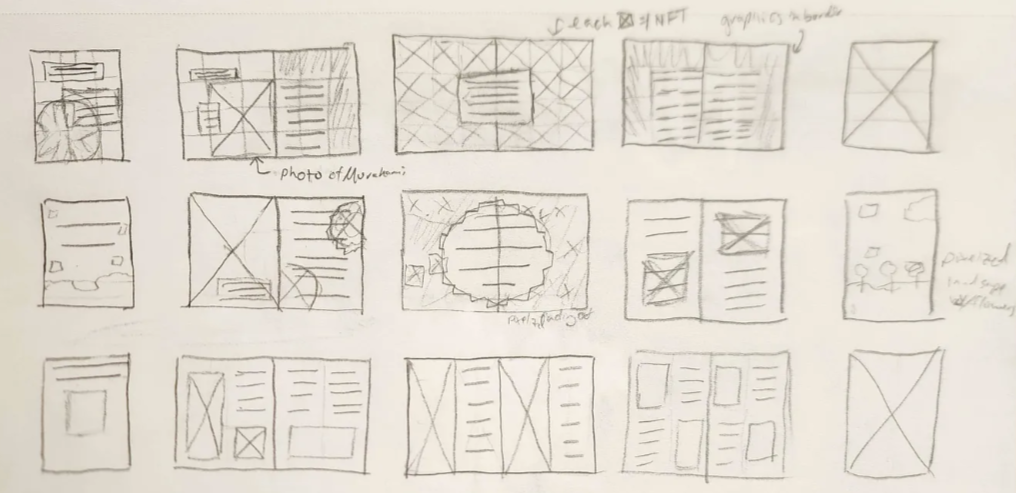 each ☒ = NFT
graphics in border
photo of Murakami
pixelized
landscape
w/ flowers